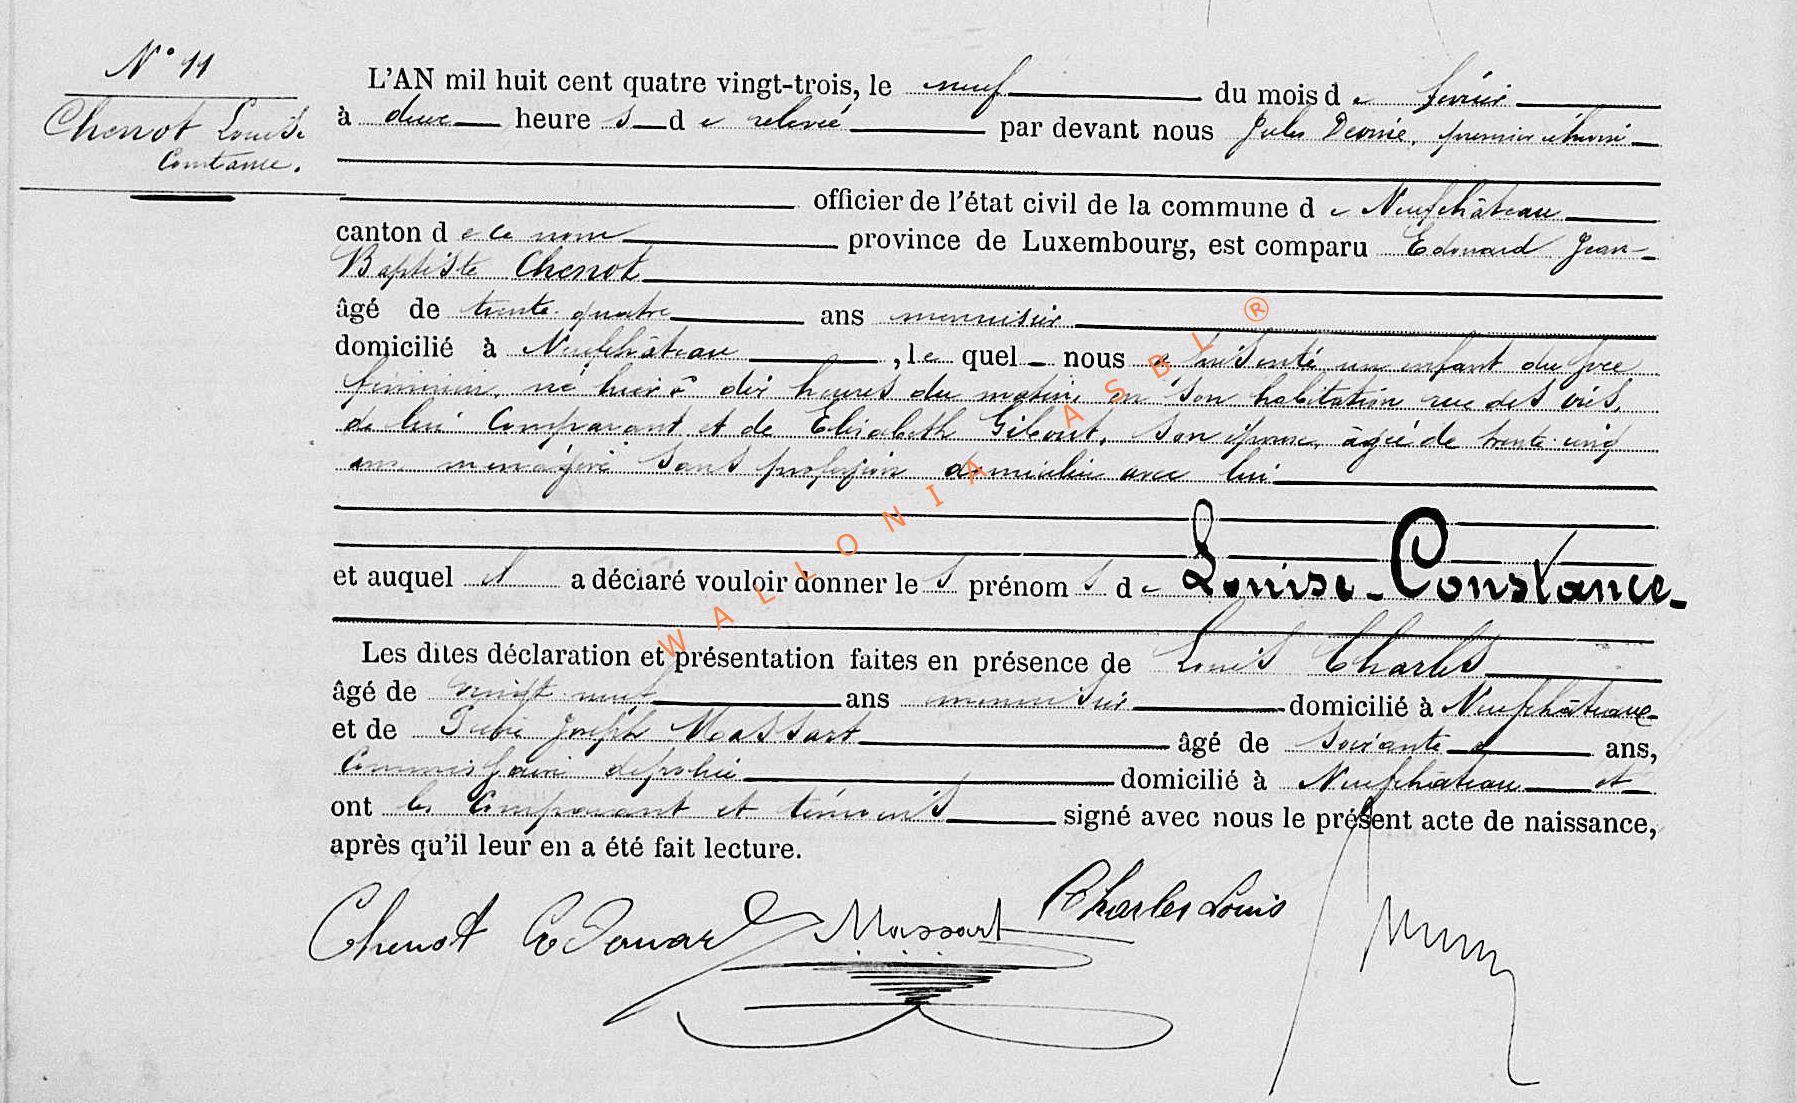 N° 11
Chenot Louise
Constance.
L'AN mil huit cent quatre vingt-trois, le neuf du mois de février
à deux heures de relevée par devant nous Jules premier échevin
officier de l'état civil de la commune de Neufchâteau
canton de ce nom province de Luxembourg, est comparu Edouard Jean-
Baptiste Chenot
âgé de trente-quatre ans menuisier
domicilié à Neufchâteau, lequel nous a présenté un enfant du sexe
féminin, né hier à dix heures du matin en son habitation rue des
de lui Comparant et de Elisabeth Gibout, son épouse, âgée de trente-cinq
ans ménagère sans profession domiciliée avec lui
et auquel il a déclaré vouloir donner les prénoms de Louise-Constance
Les dites déclaration et présentation faites en présence de Louis Charles
âgé de vingt-neuf ans menuisier domicilié à Neufchâteau
et de Joseph Massart âgé de soixante ans,
Commissaire de police domicilié à Neufchâteau et
ont les Comparant et témoins signé avec nous le présent acte de naissance,
après qu'il leur en a été fait lecture.
Chenot Edouard Massart Charles Louis
WALLONIA ASBL ®